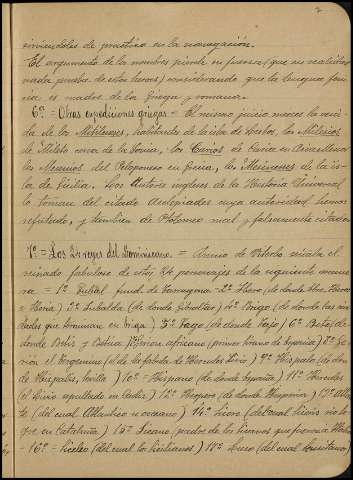 sirviendoles de practico en la navegación.
El argumento de los nombres pierde su fuerza (que en realidad
nada prueba de estos heroes) considerando que la lengua feni-
cia es madre de la Griega y romana.
6º = Otras expediciones griegas = El mismo juicio merece la veni-
da de los Metilenses, habitantes de la isla de Lesbos, los Milesios
de Mileto cerca de la Jonia, los Carios de Caria en Asia
los Mesenios del Peloponeso en Grecia, los Mesineses de la is-
la de Sicilia. Los Autores ingleses de la Historia Universal
lo toman del citado Asclepiades cuya autoridad hemos
refutado, y tambien de Ptolomeo mal y falsamente citados
7º = Los 24 reyes del Dominicano = Annio de Viterbo señala el
reinado fabuloso de estos 24 personages de la siguiente mane-
ra = 1º Tubal fund. de Tarragona = 2º Ibero (de donde Iber,
é Iberia) 3º Jubalda (de donde Gibraltar) 4º Brigo (de donde las ciu-
dades que terminan en briga) 5º Tago (de donde Tajo) 6º Beto (de
donde Betis y Betica) 7º Gerion africano (primer tirano de España) 8º Ge-
rión el Tergeminus (el de la fabula de Hercules Livio) 9º Hispalo (de don-
de Hispalis, Sevilla) 10º = Hispano (de donde España) 11º Hercules
el Livio sepultado en Cadiz) 12º Hespero (de donde Hesperia) 13º Atlan-
te (del cual Atlantico u oceano) 14º Sicoro (del cual Sicoris rio Se-
gre en Cataluña) 15º Sicano (padre de los Sicanos que
- 16º = Siceleo (del cual los Sicilianos) 17º Luso (del cual Lusitania)